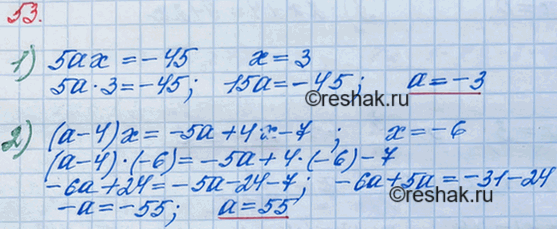 53.
1) 5ax = -45 x = 3
5a·3 = -45; 15a = -45; a = -3
©reshak.ru
2) (a-4)x = -5a+4·x-7 ; x = -6
(a-4)·(-6) = -5a+4·(-6)-7
-6a+24 = -5a-24-7; -6a+5a = -31-24
-a = -55; a = 55
©reshak.ru